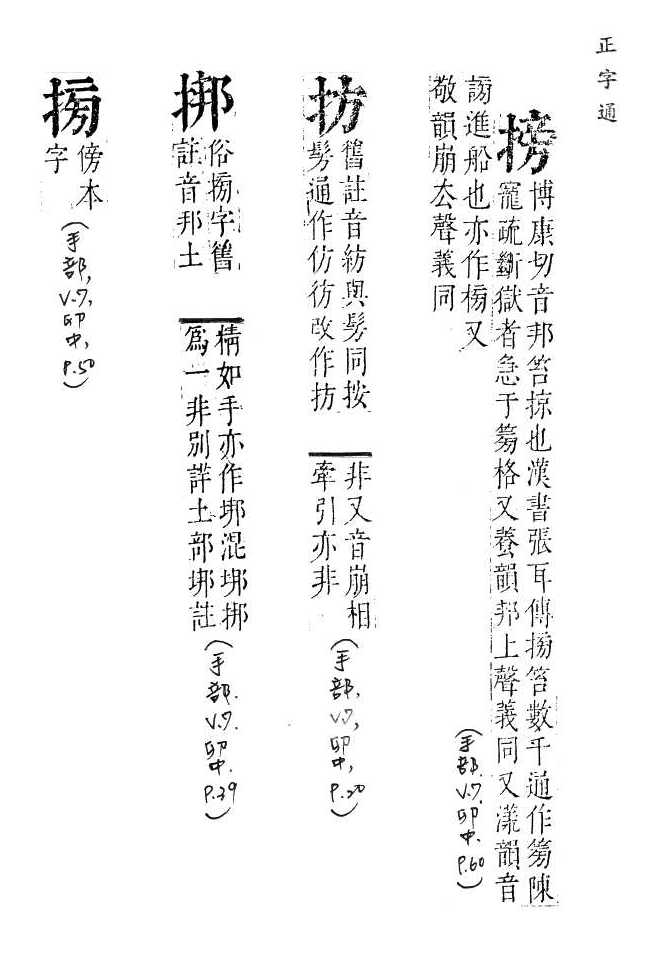 正字通
搒
博康切音邦笞掠也漢書張耳傳搒笞數千通作篣陳
寵疏斷獄者急于篣格又養韻邦上聲義同又漾韻音
謗進船也亦作榜又
敬韻崩去聲義同
(手部, V.7, 卯中, P.60)
㧍
舊註音紡與髣同按
髣通作仿彷改作㧍
非又音崩相
牽引亦非
(手部, V.7, 卯中, P.20)
挷
俗搒字舊
註音邦土
精如手亦作垹混垹挷
爲一非別詳土部垹註
(手部, V.7, 卯中, P.39)
傍本
字
(手部, V.7, 卯中, P.50)